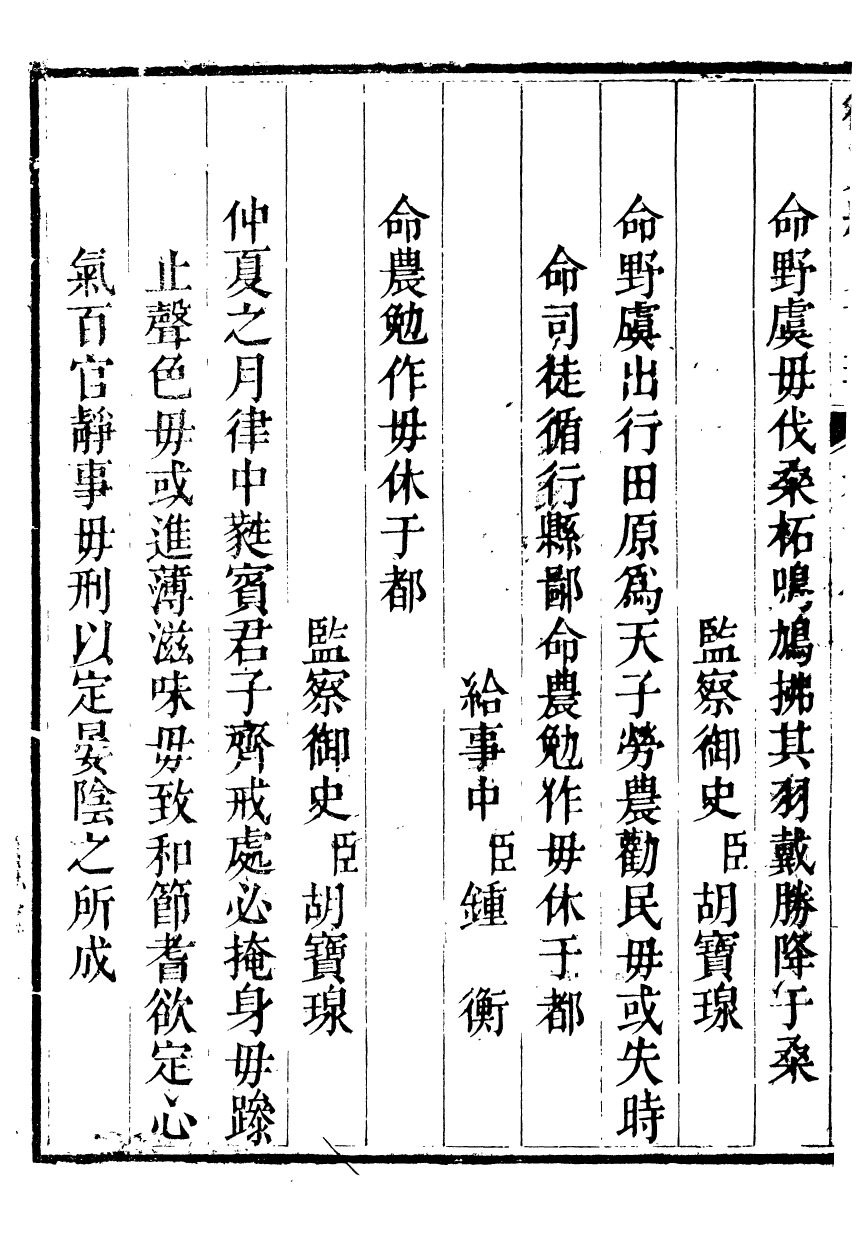 命野虞毋伐桑柘鳴鳩拂其羽戴勝降于桑
監察御史臣胡寶瑔
命野虞出行田原爲天子勞農勸民毋或失時
命司徒循行縣鄙命農勉作毋休于都
給事中臣鍾衡
命農勉作毋休于都
監察御史臣胡寶瑔
仲夏之月律中蕤賓君子齊戒處必掩身毋躁
止聲色毋或進薄滋味毋致和節耆欲定心
氣百官靜事毋刑以定晏陰之所成